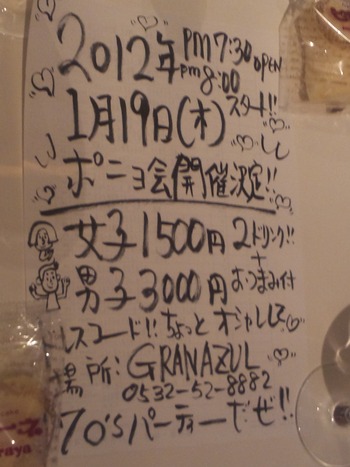 2012年 PM7:30 OPEN
PM8:00 スタート!!
1月19日(木)
ポニョ会開催決定!!
女子1500円 2ドリンク!!
+
男子3000円 おつまみ付
ドレスコード!! ちょっと オシャレして
場所:GRANAZUL
0532-52-8882
70'Sパーティーだぜ!!
raya